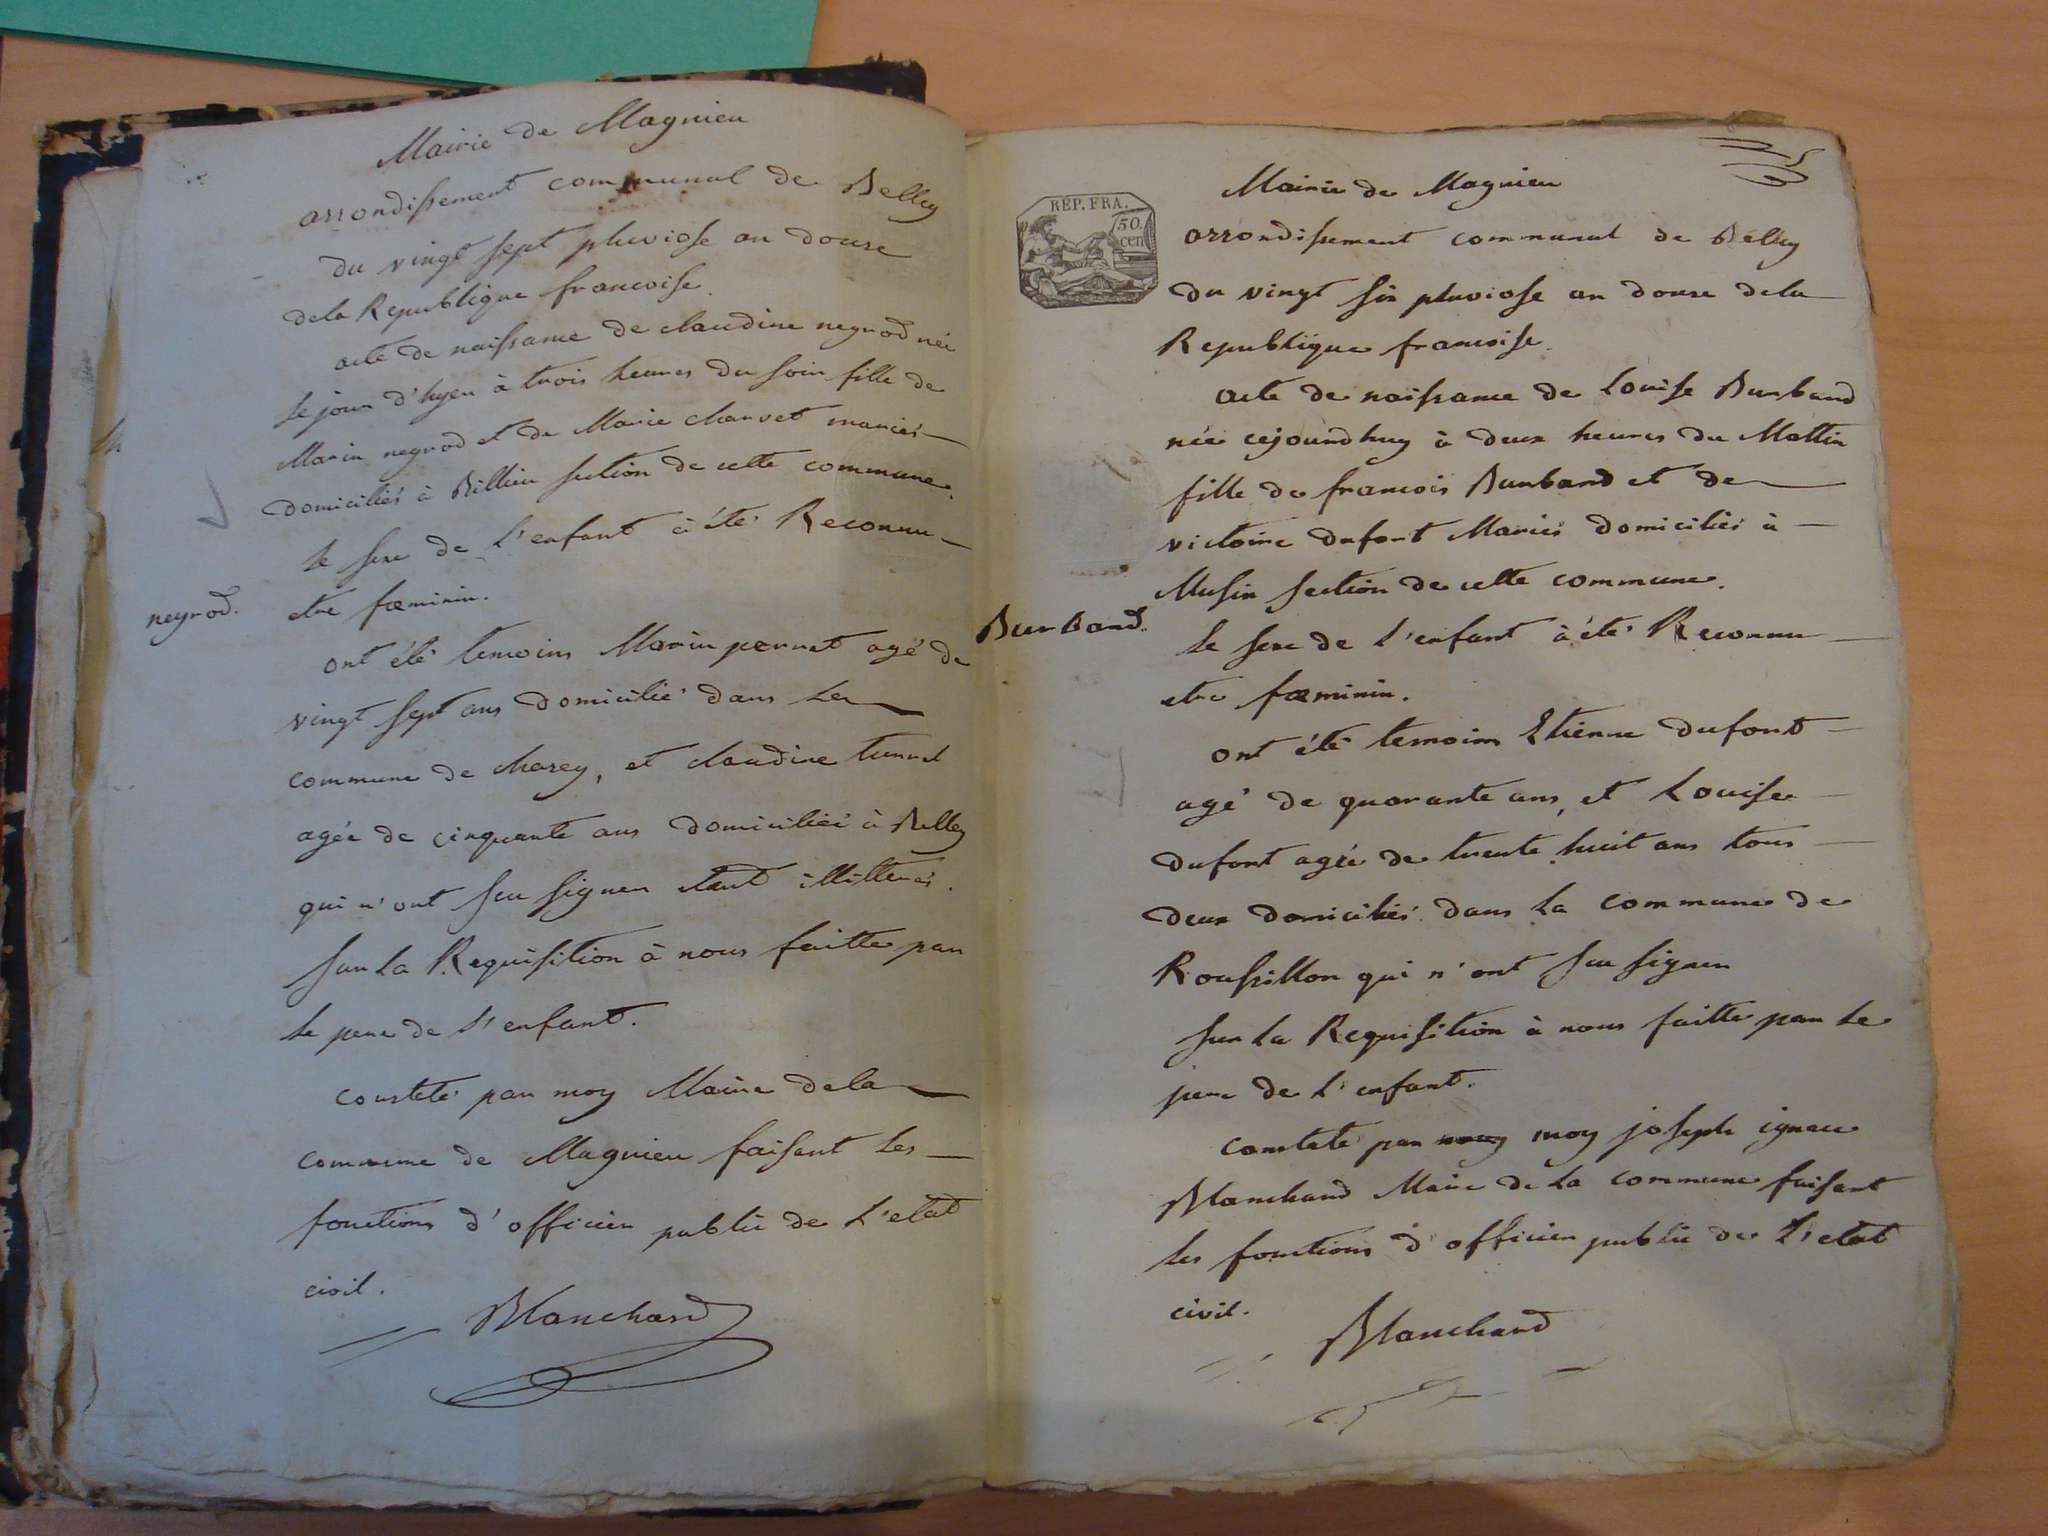 Mairie de Magnieu
arrondissement communal de Belley
du vingt sept pluviose an douze
dela Republique francoise.
acte de naissance de claudine neyrod née
le jour d'hyer à trois heures du soir fille de
Marin neyrod et de Marie charvet mariés
domiciliés à Billieu section de cette commune.
le sexe de l'enfant à été Reconnu
etre fœminin.
neyrod.
ont été temoins Marin pernet agé de
vingt sept ans domicilié dans la
commune de chasey, et claudine
agée de cinquante ans domiciliée à Belley
qui n'ont scu signer etant illitterés.
sur la Requisition à nous faitte par
le pere de l'enfant.
constaté par moy Maire dela
commune de Magnieu faisant les
fonctions d'officier public de l'etat
civil.
Blanchard
Mairie de Magnieu
REP. FRA.
50.
cen
arrondissement communal de Belley
du vingt six pluviose an douze dela
Republique francoise.
acte de naissance de Louise Burband
née cejourdhuy à deux heures du Mattin
fille de francois Burband et de
victoire dufort Mariés domiciliés à
Musin section de cette commune.
Burband.
le sexe de l'enfant à été Reconnu
etre fœminin.
ont été temoins Etienne dufort
agé de quarante ans, et Louise
dufort agée de trente huit ans tous
deux domiciliés dans la commune de
Roussillon qui n'ont scu signer
sur la Requisition à nous faitte par le
pere de l'enfant.
constaté par moy joseph ignace
Blanchard Maire de la commune faisant
les fonctions d'officier public de l'etat
civil.
Blanchard